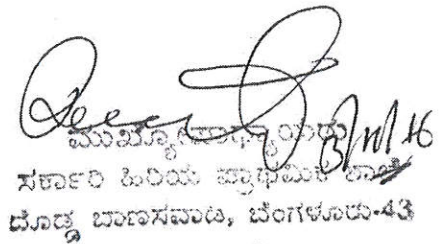 3/11/16
ಮುಖ್ಯೋಪಾಧ್ಯಾಯರು
ಸರ್ಕಾರಿ ಹಿರಿಯ ಪ್ರಾಥಮಿಕ ಶಾಲೆ
ದೊಡ್ಡ ಬಾಣಸವಾಡಿ, ಬೆಂಗಳೂರು-43